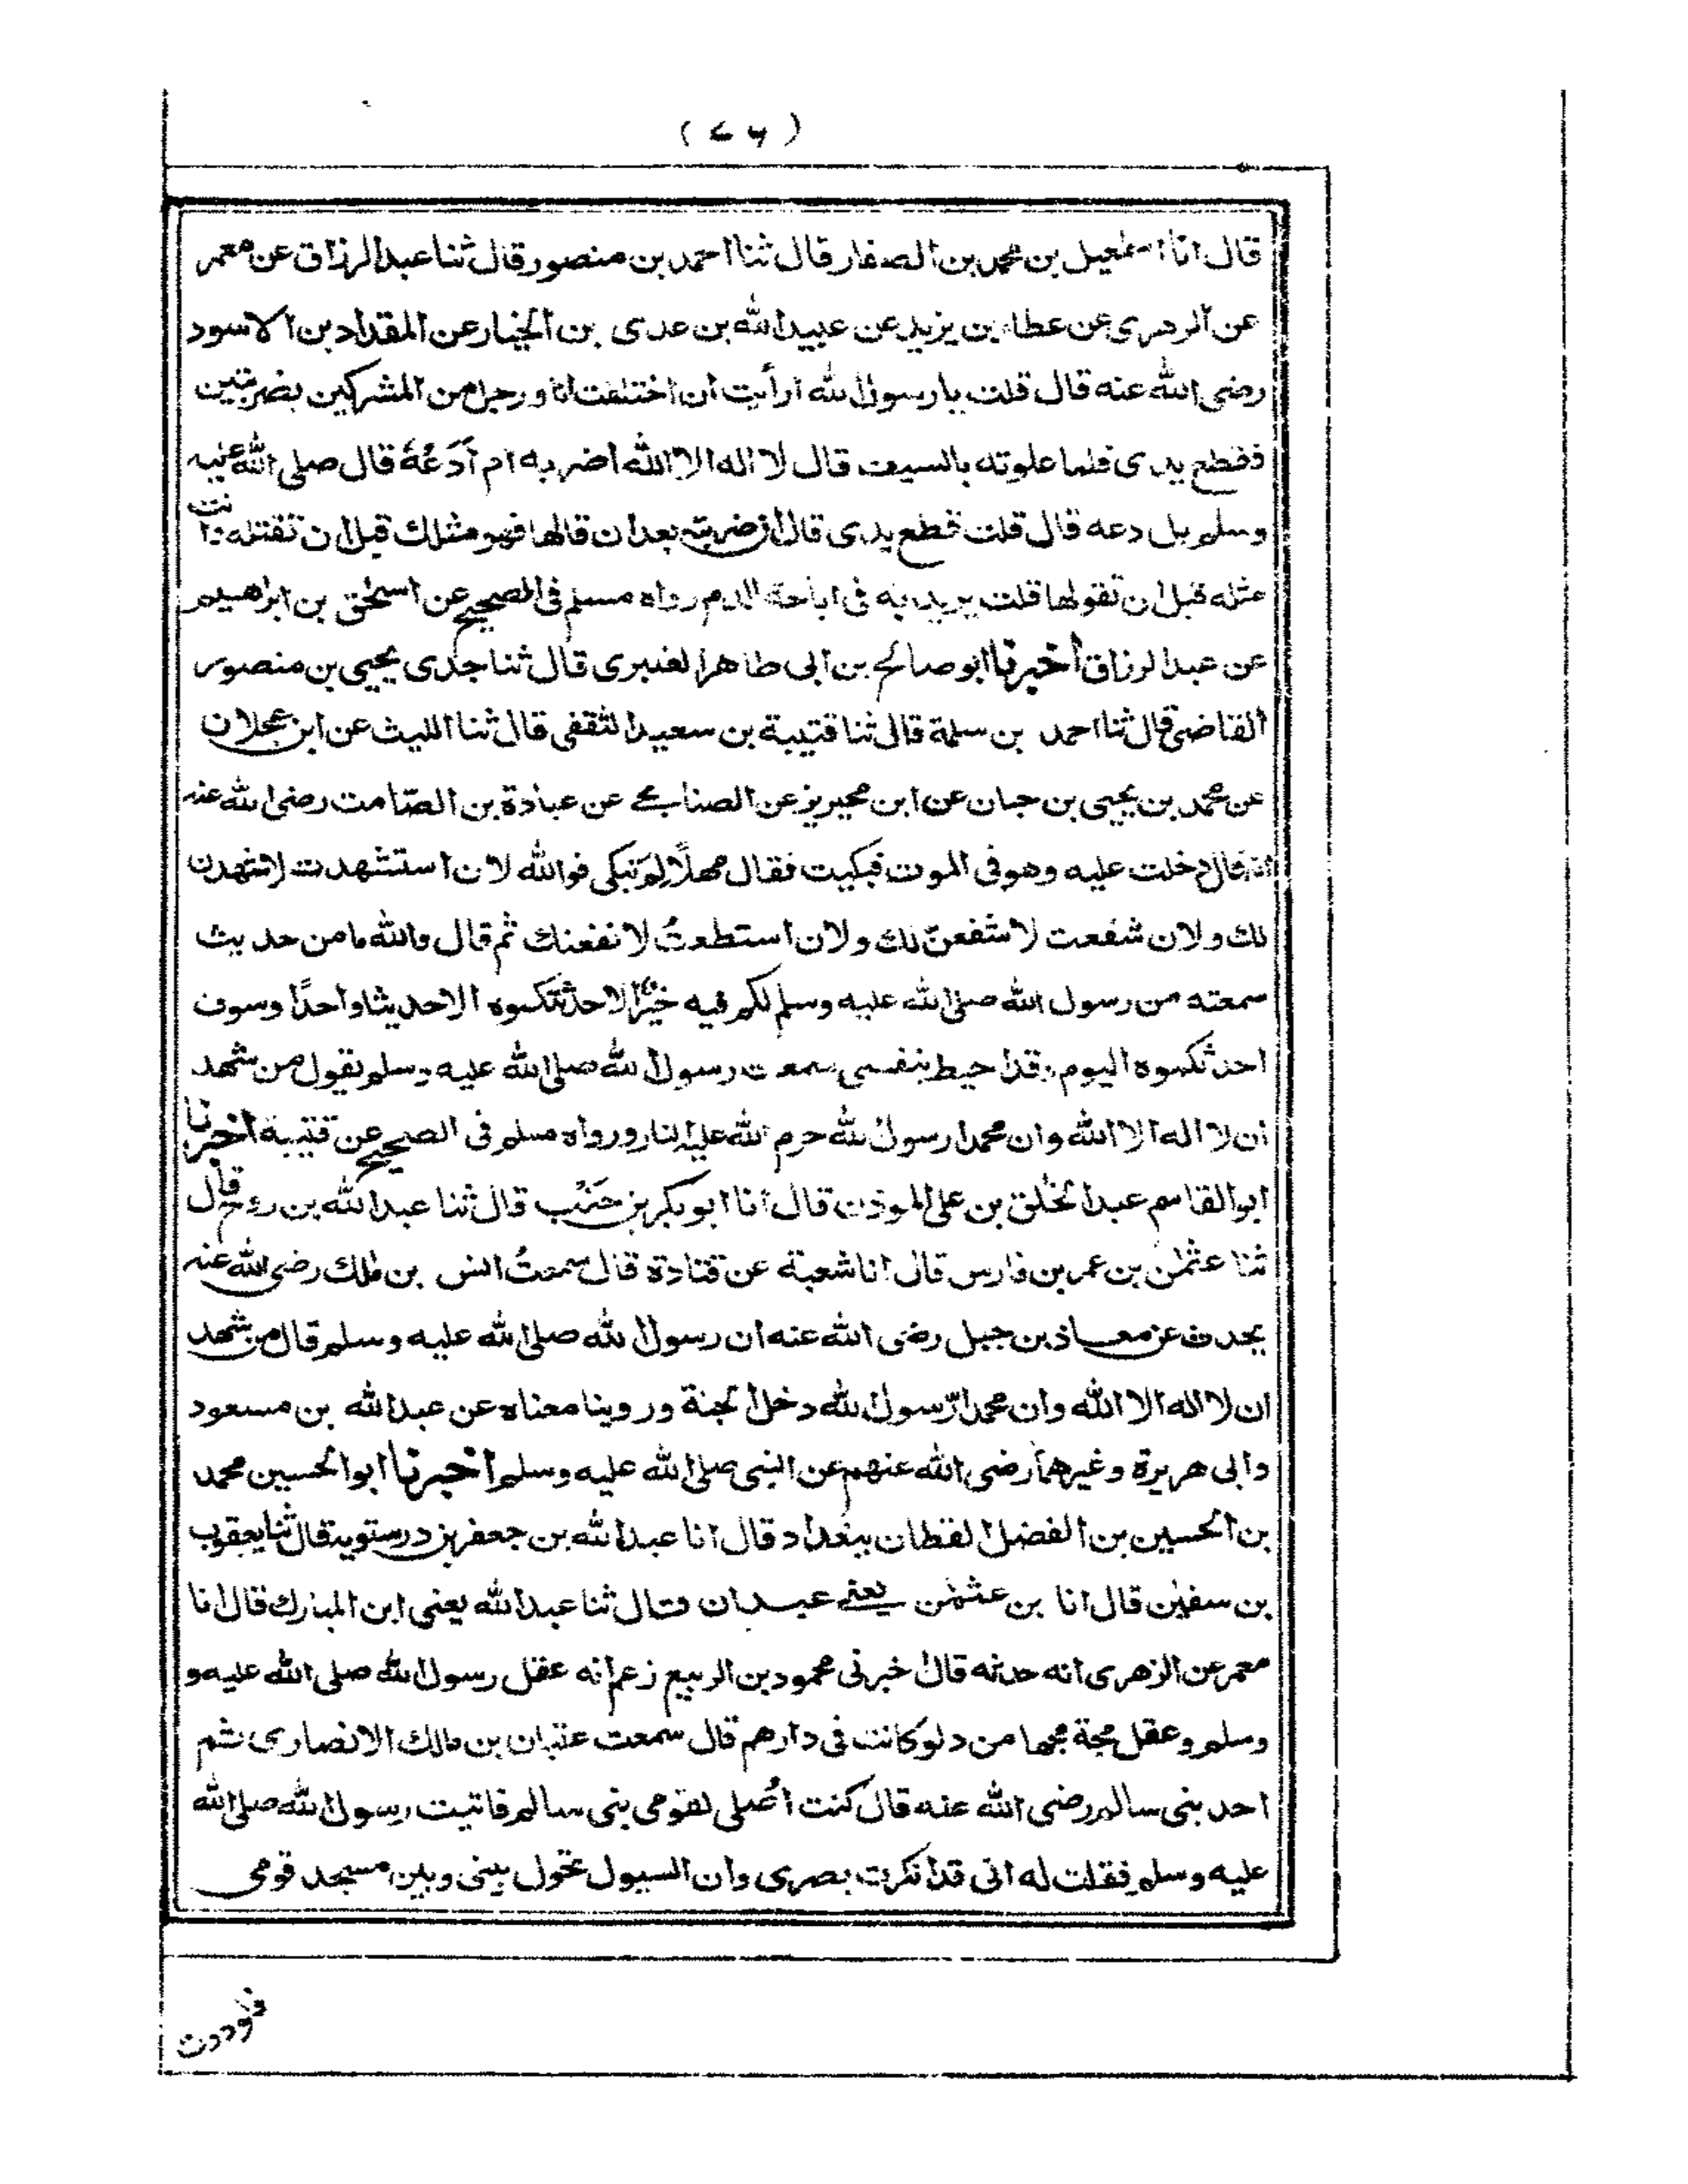 (٧٦)
قال انا اسمٰعيل بن محمد بن الصفار قال ثنا احمد بن منصور قال ثنا عبد الرزاق عن معمر
عن الزهرى عن عطاء بن يزيد عن عبيد الله بن عدى بن الخيار عن المقداد بن الاسود
رضى الله عنه قال قلت يا رسول الله ارأيت ان اختلفت انا و رجل من المشركين بضربتين
فقطع يدى فلما علوته بالسيف قال لا اله الا الله اضربه ام أَدَعُهُ قال صلى الله عليه
وسلم بل دعه قال قلت قطع يدى قال ان ضربته بعد ان قالها فهو مثلك قبل ان تقتله وانت
مثله قبل ان تقولها قلت يريد به فى اباحة الدم رواه مسلم فى الصحيح عن اسحٰق بن ابراهيم
عن عبد الرزاق أخبرنا ابو صالح بن ابى طاهر العنبرى قال ثنا جدى يحيى بن منصور
القاضى قال ثنا احمد بن سلمة قال ثنا قتيبة بن سعيد الثقفى قال ثنا الليث عن ابن عجلان
عن محمد بن يحيى بن حبان عن ابن محيريز عن الصنابحے عن عبادة بن الصّامت رضى الله عنه
انه قال دخلت عليه وهو فى الموت فبكيت فقال مهلًا لِمَ تبكى فوالله لان استشهدت لاشهدن
لك و لان شفعت لاشفعنّ لك و لان استطعتُ لانفعنك ثم قال والله ما من حديث
سمعته من رسول الله صلى الله عليه وسلم لكم فيه خيرٌ الا حدثتكموه الا حديثا واحدًا وسوف
احدثكموه اليوم وقد احيط بنفسى سمعت رسول الله صلى الله عليه وسلم يقول من شهد
ان لا اله الا الله وان محمدا رسول الله حرم الله عليه النار ورواه مسلم فى الصحيح عن قتيبة اخبرنا
ابو القاسم عبد الخٰلق بن على المؤذن قال انا ابو بكر بن خَنْب قال ثنا عبد الله بن روح قال
ثنا عثمٰن بن عمر بن فارس قال انا شعبة عن قتادة قال سمعتُ انس بن مٰلك رضى الله عنه
يحدث عن معاذ بن جبل رضى الله عنه ان رسول الله صلى الله عليه وسلم قال من شهد
ان لا اله الا الله وان محمدا رّسول الله دخل الجنة و روينا معناه عن عبد الله بن مسعود
وابى هريرة وغيرهما رضى الله عنهم عن النبى صلى الله عليه وسلم اخبرنا ابو الحسين محمد
بن الحسين بن الفضل القطان ببغداد قال انا عبد الله بن جعفر بن درستويه قال ثنا يعقوب
بن سفيٰن قال انا بن عثمٰن يعنے عبدان قال ثنا عبد الله يعنى ابن المبارك قال انا
معمر عن الزهرى انه حدثه قال اخبرنى محمود بن الربيع زعم انه عقل رسول الله صلى الله عليه و
وسلم و عقل مجة مجها من دلو كانت فى دارهم قال سمعت عتبان بن مالك الانصارى ثم
احد بنى سالم رضى الله عنه قال كنت اُصلى لقومى بنى سالم فاتيت رسول الله صلى الله
عليه وسلم فقلت له انى قد انكرت بصرى وان السيول تحول بينى وبين مسجد قومى
فلوددت